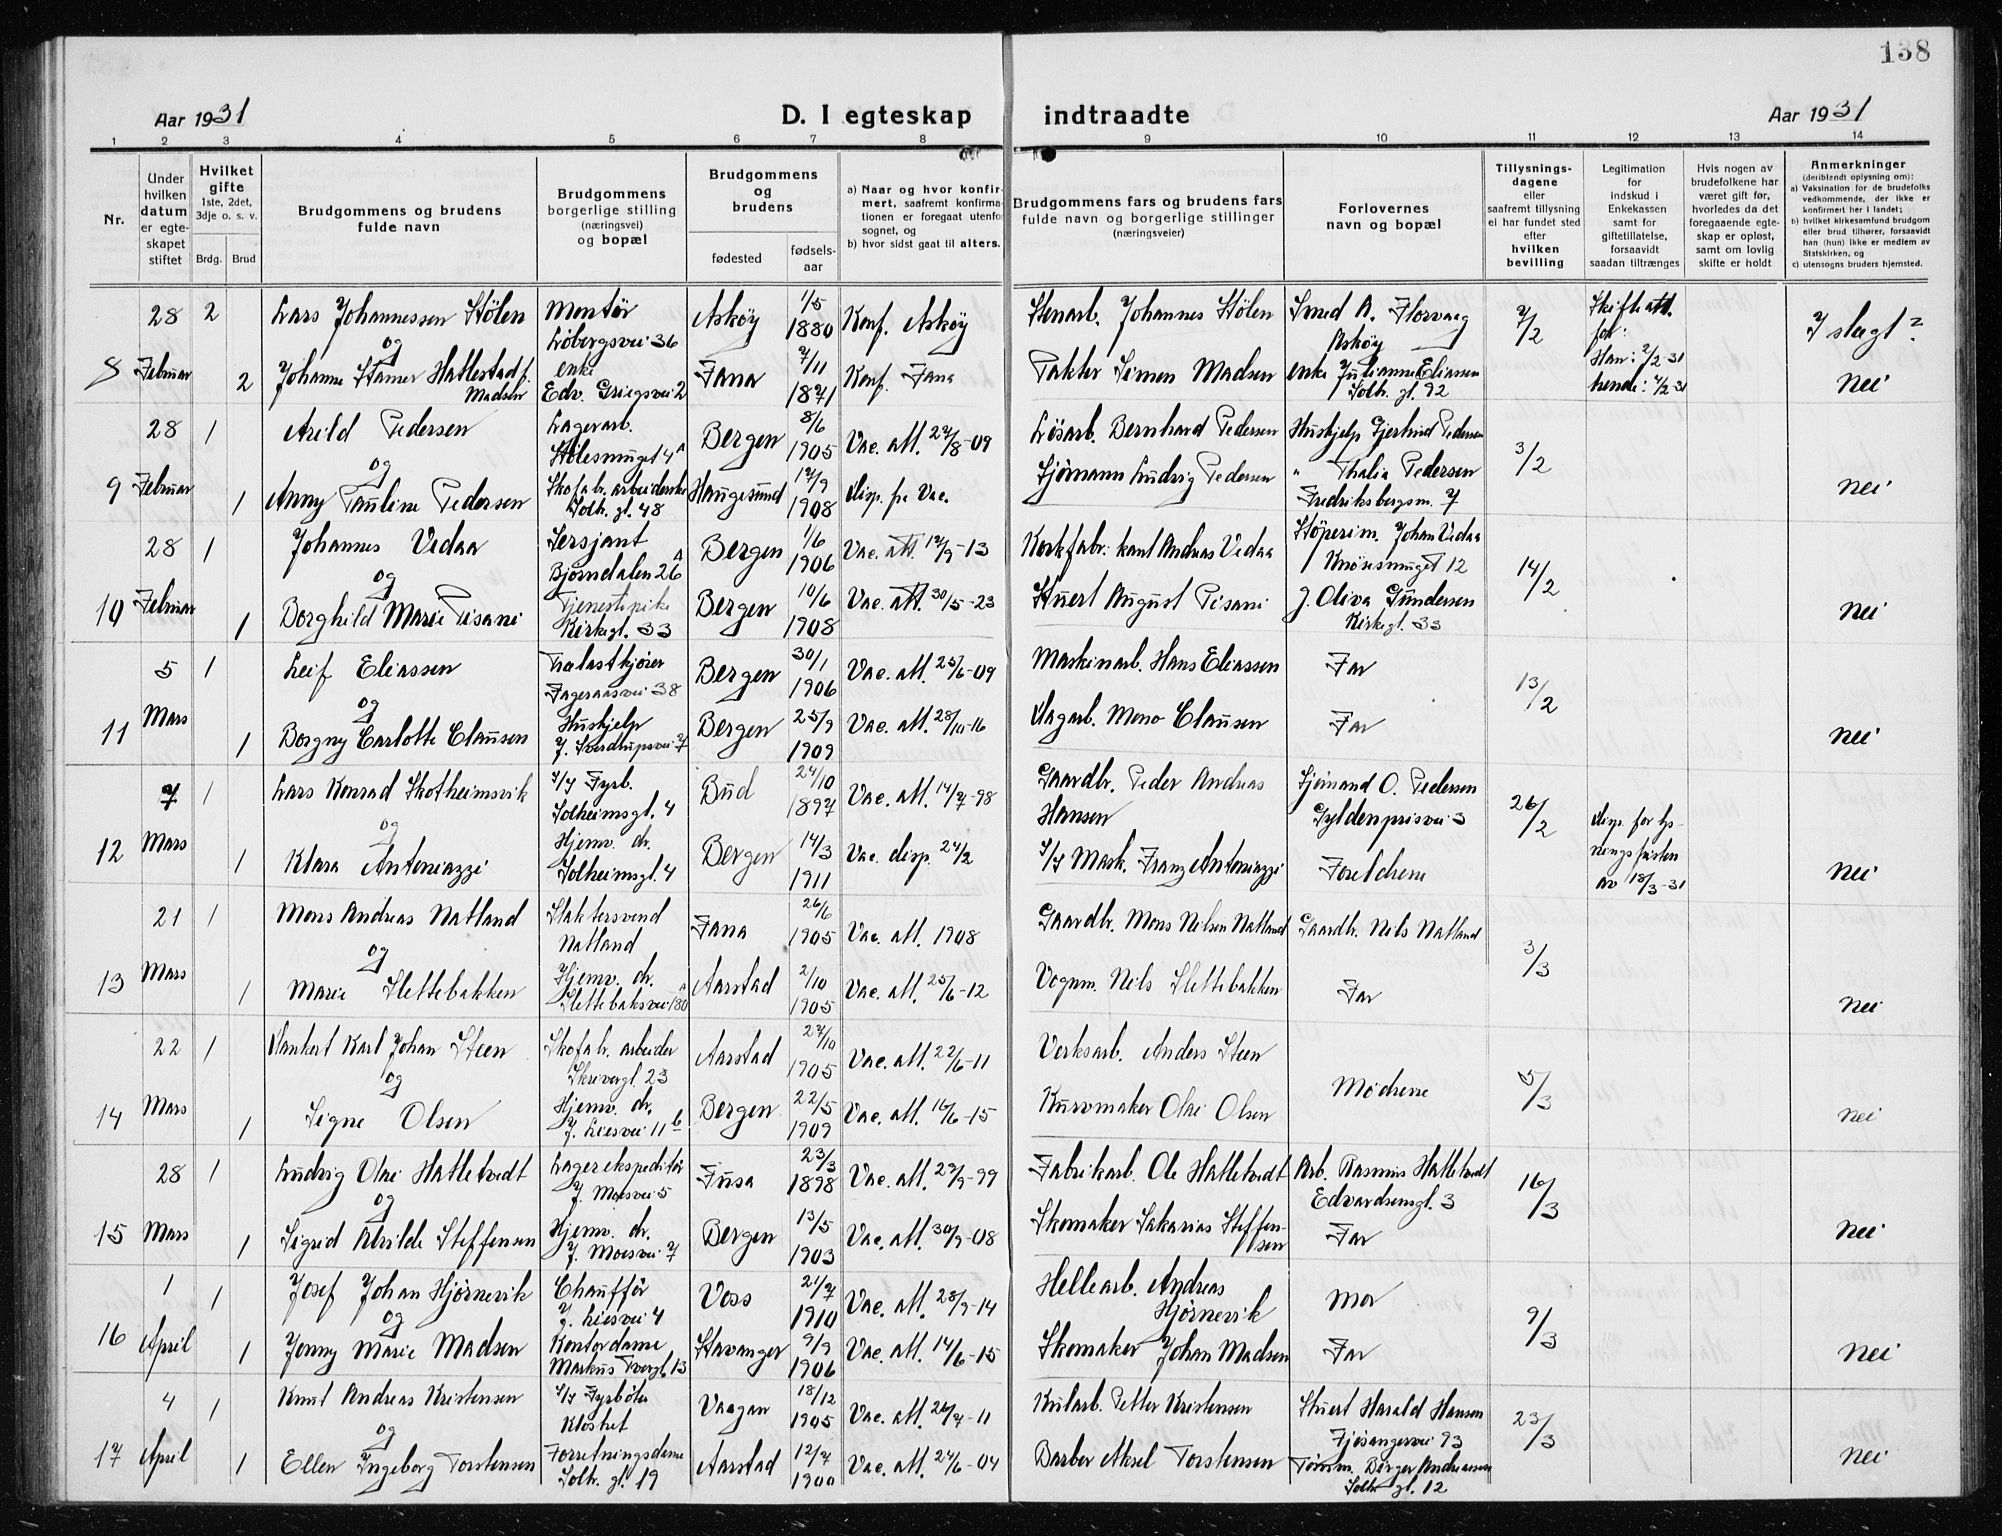 138
Aar 1931 D. I egteskap indtraadte Aar 1931
1 2 3 4 5 6 7 8 9 10 11 12 13 14
Nr.
Under hvilken datum er egteskapet stiftet
Hvilket gifte 1ste, 2det, 3dje o. s. v.
Brdg. Brud
Brudgommens og brudens fulde navn
Brudgommens borgerlige stilling (næringsvei) og bopæl
Brudgommens og brudens
fødested fødsels-aar
a) Naar og hvor konfirmert, saafremt konfirmationen er foregaat utenfor sognet, og
b) hvor sidst gaat til alters.
Brudgommens fars og brudens fars fulde navn og borgerlige stillinger (næringsveier)
Forlovernes navn og bopæl
Tillysningsdagene eller saafremt tillysning ei har fundet sted efter hvilken bevilling
Legitimation for indskud i Enkekassen samt for giftetillatelse, forsaavidt saadan tiltrænges
Hvis nogen av brudefolkene har været gift før, hvorledes da det foregaaende egteskap er opløst, samt om lovlig skifte er holdt
Anmerkninger (deriblandt oplysning om):
a) Vaksination for de brudefolks vedkommende, der ikke er konfirmert her i landet;
b) hvilket kirkesamfund brudgom eller brud tilhører, forsaavidt han (hun) ikke er medlem av Statskirken, og
c) utensogns bruders hjemsted.
8 28 Februar 2 Lars Johannessen Stølen Montør Løbergsvei 36 Askøy 1/5 1880 Konf. Askøy Stenarb. Johannes Stølen Smed A. Florvaag Askøy 7/2 Skifteatt. for: Han: 2/2-31 I slægt?
og
2 Johanne Stamer Hatlestad f. Madsen enke Edv. Griegsvei 2 Fana 7/11 1871 Konf. Fana Pakter Simen Madsen enke Julianne Eliassen Solh. gt. 92 hende: 4/2-31 Nei
9 28 Februar 1 Arild Pedersen Lagerarb. Stølesmuget 4A Bergen 8/6 1905 Vac. att. 27/8-09 Løsarb. Bernhard Pedersen Hushjelp Gjertrud Pedersen 3/2
og
1 Anny Pauline Pedersen Skofabr. arbeiderske Solh. gt. 48 Haugesund 17/9 1908 disp. fr. Vac. Sjømann Ludvig Pedersen " Thalia Pedersen Fredriksbergsm. 7 Nei
10 28 Februar 1 Johannes Vedaa Sersjant Bjørndalen 26A Bergen 1/6 1906 Vac. att. 12/9-13 Korkfabrikant Andreas Vedaa Støperim. Johan Vedaa Knøsesmuget 12 14/2
og
1 Borghild Marie Pisani Tjenestepike Kirkegt. 33 Bergen 10/6 1908 Vac. att. 30/5-23 Stuert August Pisani J. Oliva Gundersen Kirkegt. 33 Nei
11 5 Mars 1 Leif Eliassen Trelastkjører Fageraasvei 38 Bergen 30/1 1906 Vac. att. 25/6-09 Maskinarb. Hans Eliassen Far 13/2
og
1 Borgny Carlotte Clausen Hushjelp J. Sverdrupsvei 7 Bergen 25/9 1909 Vac. att. 28/10-16 Dagarb. Meno Clausen Far Nei
12 7 Mars 1 Lars Konrad Skotheimsvik S/S Fyrb. Solheimsgt. 4 Bud 24/10 1897 Vac. att. 14/7-98 Gaardbr. Peder Andreas Hansen Sjømand O. Pedersen Gyldenprisvei 3 26/2 disp. for lysningsfristen av 18/3-31
og
1 Klara Antoniazzi Hjemv. dr. Solheimsgt. 4 Bergen 14/3 1911 Vac. disp. 24/2 S/S Mask. Franz Antoniazzi Foreldrene Nei
13 21 Mars 1 Mons Andreas Natland Slaktersvend Natland Fana 26/6 1905 Vac. att. 1908 Gaardbr. Mons Nilsen Natland Gaardb. Nils Natland 3/3
og
1 Marie Slettebakken Hjemv. dr. Slettebaksvei 180A Aarstad 2/10 1905 Vac. att. 25/6-12 Vognm. Nils Slettebakken Far Nei
14 22 Mars 1 Dankert Karl Johan Steen Skofabr. arbeider Skrivergt. 23 Aarstad 27/10 1905 Vac. att. 22/6-11 Verksarb. Anders Steen Mødrene 5/3
og
1 Signe Olsen Hjemv. dr. J. Liesvei 11b Bergen 22/5 1909 Vac. att. 16/6-15 Kurvmaker Olai Olsen Nei
15 28 Mars 1 Ludvig Olai Hatletvedt Lagerekspeditør J. Moesvei 5 Fusa 23/3 1898 Vac. att. 23/9-99 Fabrikarb. Ole Hatletvedt Arb. Rasmus Hatletvedt Edvardsensgt. 3 16/3
og
1 Sigrid Alvilde Steffensen Hjemv. dr. J. Moesvei 7 Bergen 13/5 1903 Vac. att. 30/9-08 Skomaker Sakarias Steffensen Far Nei
16 1 April 1 Josef Johan Hjørnevik Chauffør J. Liesvei 4 Voss 21/7 1910 Vac. att. 28/9-14 Hellearb. Andreas Hjørnevik Mor 9/3
og
1 Jenny Marie Madsen Kontordame Markus Tvergt. 13 Stavanger 9/9 1906 Vac. att. 14/6-15 Skomaker Johan Madsen Far Nei
17 4 April 1 Knut Andreas Kristensen S/S Fyrbøter Klostret Vaagan 18/12 1905 Vac. att. 26/7-11 Kularb. Petter Kristensen Stuert Harald Hansen Fjøsangervei 93 23/3
og
1 Ellen Ingeborg Torstensen Forretningsdame Solh. gt. 19 Aarstad 12/7 1900 Vac. att. 24/6-04 Barber Aksel Torstensen Tømm. Birger Andreassen Solh. gt. 12 Nei